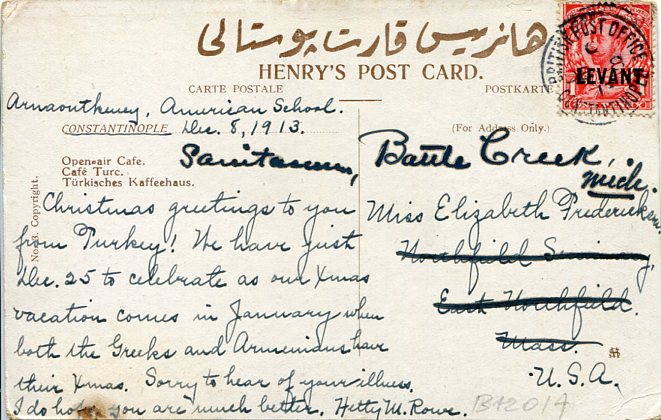 هانريس قارت پوستالی
HENRY'S POST CARD.
CARTE POSTALE
POSTKARTE
BRITISH POST OFFICE
CONSTANTINOPLE
LEVANT
Arnaoutkeuy, American School.
CONSTANTINOPLE Dec. 8, 1913.
(For Address Only.)
Open-air Cafe.
Café Turc.
Türkisches Kaffeehaus.
Copyright.
Sanitarium, Battle Creek,
Mich.
Christmas greetings to you
from Turkey! We have just
Dec. 25 to celebrate as our Xmas
vacation comes in January when
both the Greeks and Armenians have
their Xmas. Sorry to hear of your illness.
I do hope you are much better. Hetty M. Rowe.
Miss Elizabeth Fredericksen
Northfield Seminary,
East Northfield.
Mass.
U.S.A.
B12014